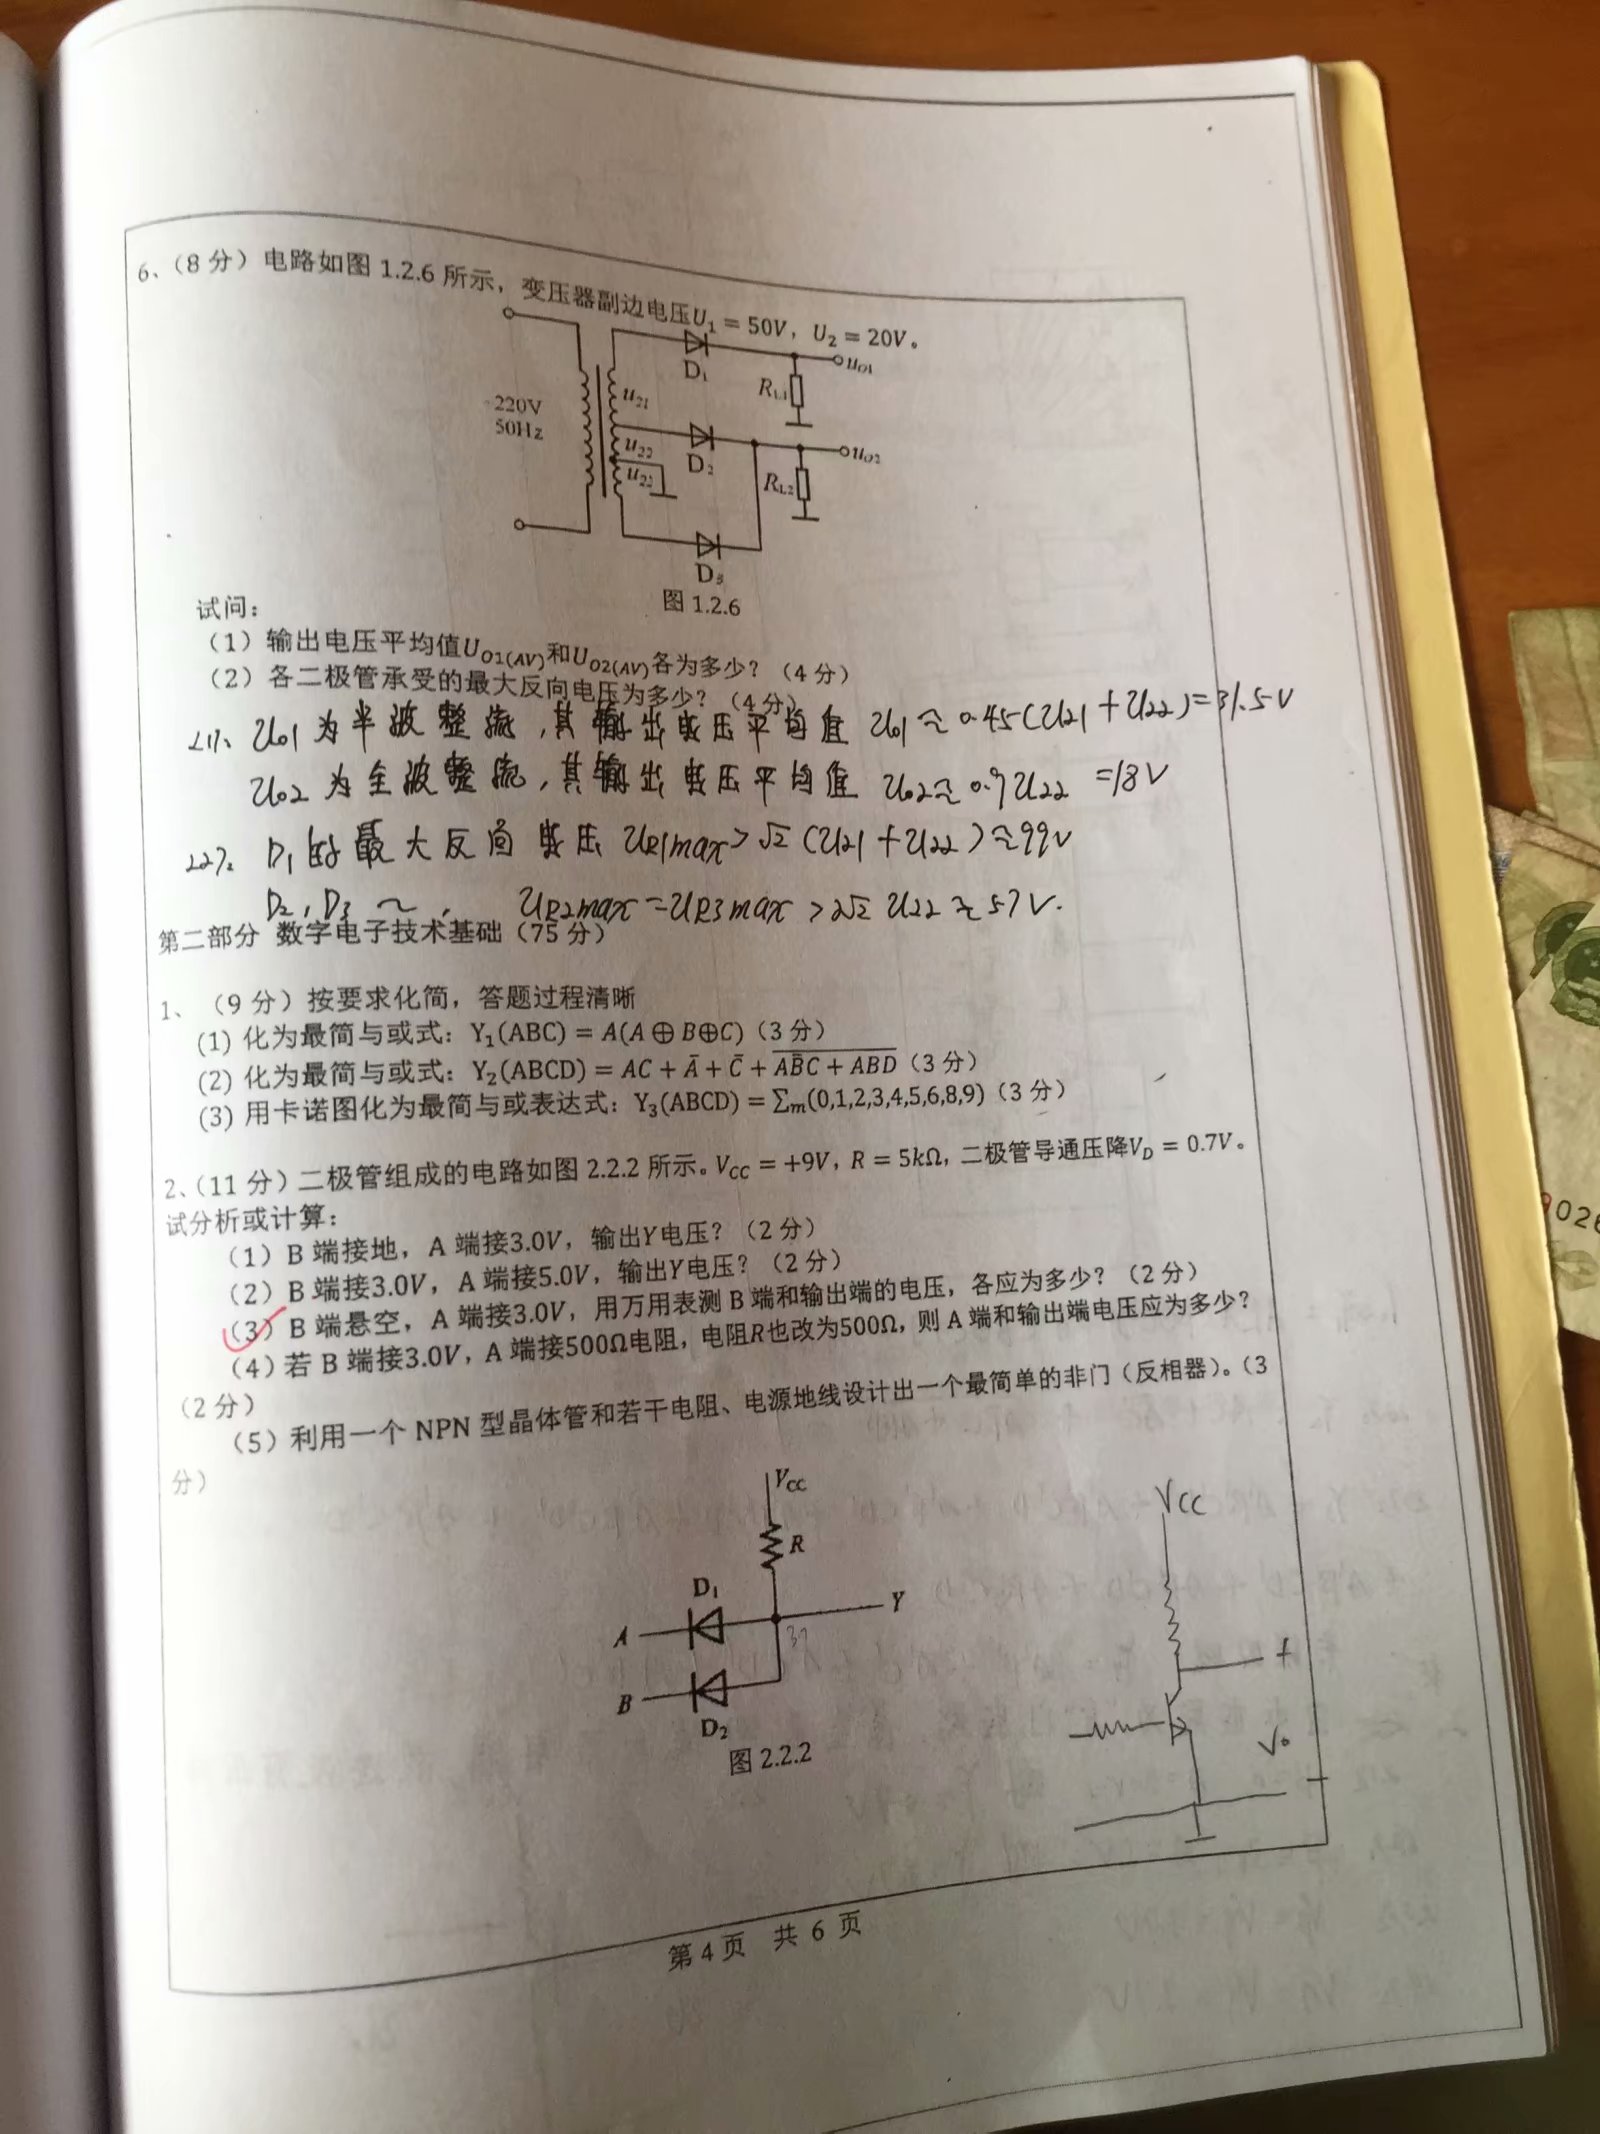 6、（8 分）电路如图 1.2.6 所示，变压器副边电压U₁ = 50V，U₂ = 20V。
D₁
uO1
RL1
u21
220V
50Hz
D₂
uO2
u22
u22
RL2
D₃
图 1.2.6
试问：
（1）输出电压平均值UO1(AV)和UO2(AV)各为多少？（4 分）
（2）各二极管承受的最大反向电压为多少？（4 分）
(1)、Uo1 为半波整流，其输出电压平均值 Uo1≈0.45(U21+U22)=31.5V
Uo2 为全波整流，其输出电压平均值 Uo2≈0.9U22 =18V
(2)、D1的最大反向电压 UR1max>√2(U21+U22)≈99V
D2，D3 ~， UR2max=UR3max>2√2 U22≈57V.
第二部分 数字电子技术基础（75 分）
1、（9 分）按要求化简，答题过程清晰
(1) 化为最简与或式：Y₁(ABC) = A(A ⊕ B⊕C)（3 分）
(2) 化为最简与或式：Y₂(ABCD) = AC + A̅ + C̅ + \overline{AB̅C + ABD}（3 分）
(3) 用卡诺图化为最简与或表达式：Y₃(ABCD) = ∑m(0,1,2,3,4,5,6,8,9)（3 分）
2、（11 分）二极管组成的电路如图 2.2.2 所示。VCC = +9V，R = 5kΩ，二极管导通压降VD = 0.7V。
试分析或计算：
（1）B 端接地，A 端接3.0V，输出Y电压？（2 分）
（2）B 端接3.0V，A 端接5.0V，输出Y电压？（2 分）
（3）B 端悬空，A 端接3.0V，用万用表测 B 端和输出端的电压，各应为多少？（2 分）
（4）若 B 端接3.0V，A 端接500Ω电阻，电阻R也改为500Ω，则 A 端和输出端电压应为多少？
（2 分）
（5）利用一个 NPN 型晶体管和若干电阻、电源地线设计出一个最简单的非门（反相器）。（3
分）
VCC
R
D₁
A
Y
B
D₂
图 2.2.2
VCC
+
Vo
第 4 页 共 6 页